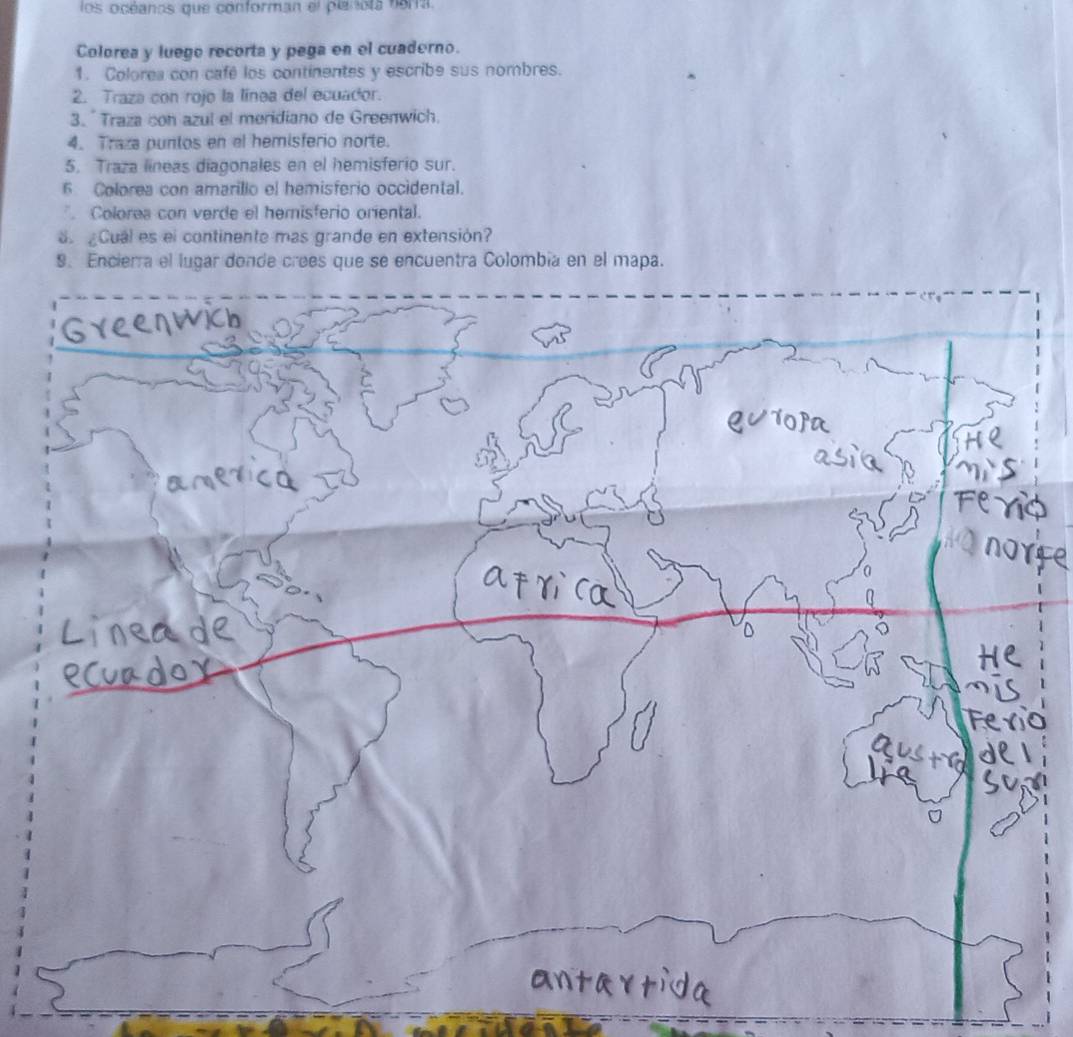 los océanos que conforman el planeta tierra.
Colorea y luego recorta y pega en el cuaderno.
1. Colorea con café los continentes y escribe sus nombres.
2. Traza con rojo la línea del ecuador.
3. Traza con azul el meridiano de Greenwich.
4. Traza puntos en el hemisferio norte.
5. Traza líneas diagonales en el hemisferio sur.
6 Colorea con amarillo el hemisferio occidental.
Colorea con verde el hemisferio oriental.
8. ¿Cuál es el continente mas grande en extensión?
9. Encierra el lugar donde crees que se encuentra Colombia en el mapa.
Greenwich
europa
asia
He
mis
Ferio
norte
america
africa
Linea de
ecuador
He
mis
Ferio
del
sur
austra
lia
antartida